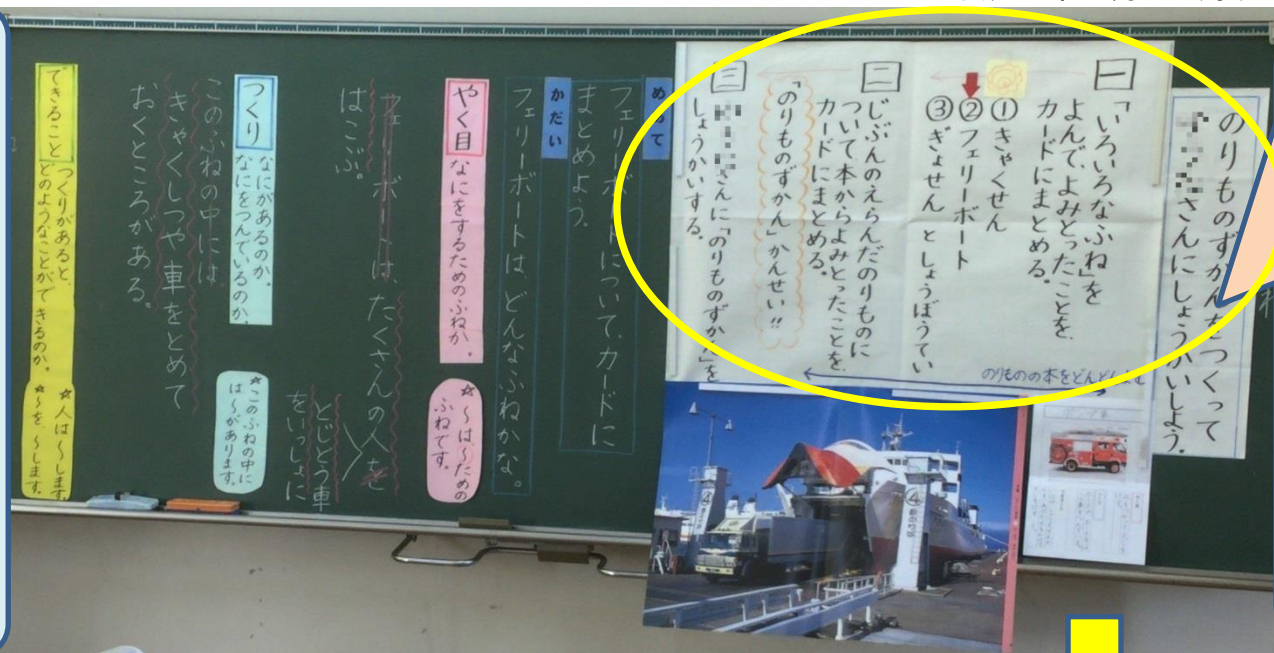 のりものずかんをつくって
さんにしょうかいしよう。
一
「いろいろなふね」を
よんで、よみとったことを
カードにまとめる。
①きゃくせん
②フェリーボート
③ぎょせん としょうぼうてい
二
じぶんのえらんだのりものに
ついて本からよみとったことを
カードにまとめる。
「のりものずかん」かんせい!!
三
さんに「のりものずかん」を
しょうかいする。
のりものの本をどんどん
めあて
フェリーボートについて、カードに
まとめよう。
かだい
フェリーボートは、どんなふねかな。
やく目
なにをするためのふねか。
☆〜は、〜ための
ふねです。
フェリーボートは、たくさんの人を
はこぶ。
とじどう車
をいっしょに
つくり
なにがあるのか。
なにをつんでいるのか。
☆このふねの中に
は〜があります。
このふねの中には
きゃくしつや車をとめて
おくところがある。
できること
つくりがあると、
どのようなことができるのか。
☆人は〜します。
☆〜を、〜します。
④
④